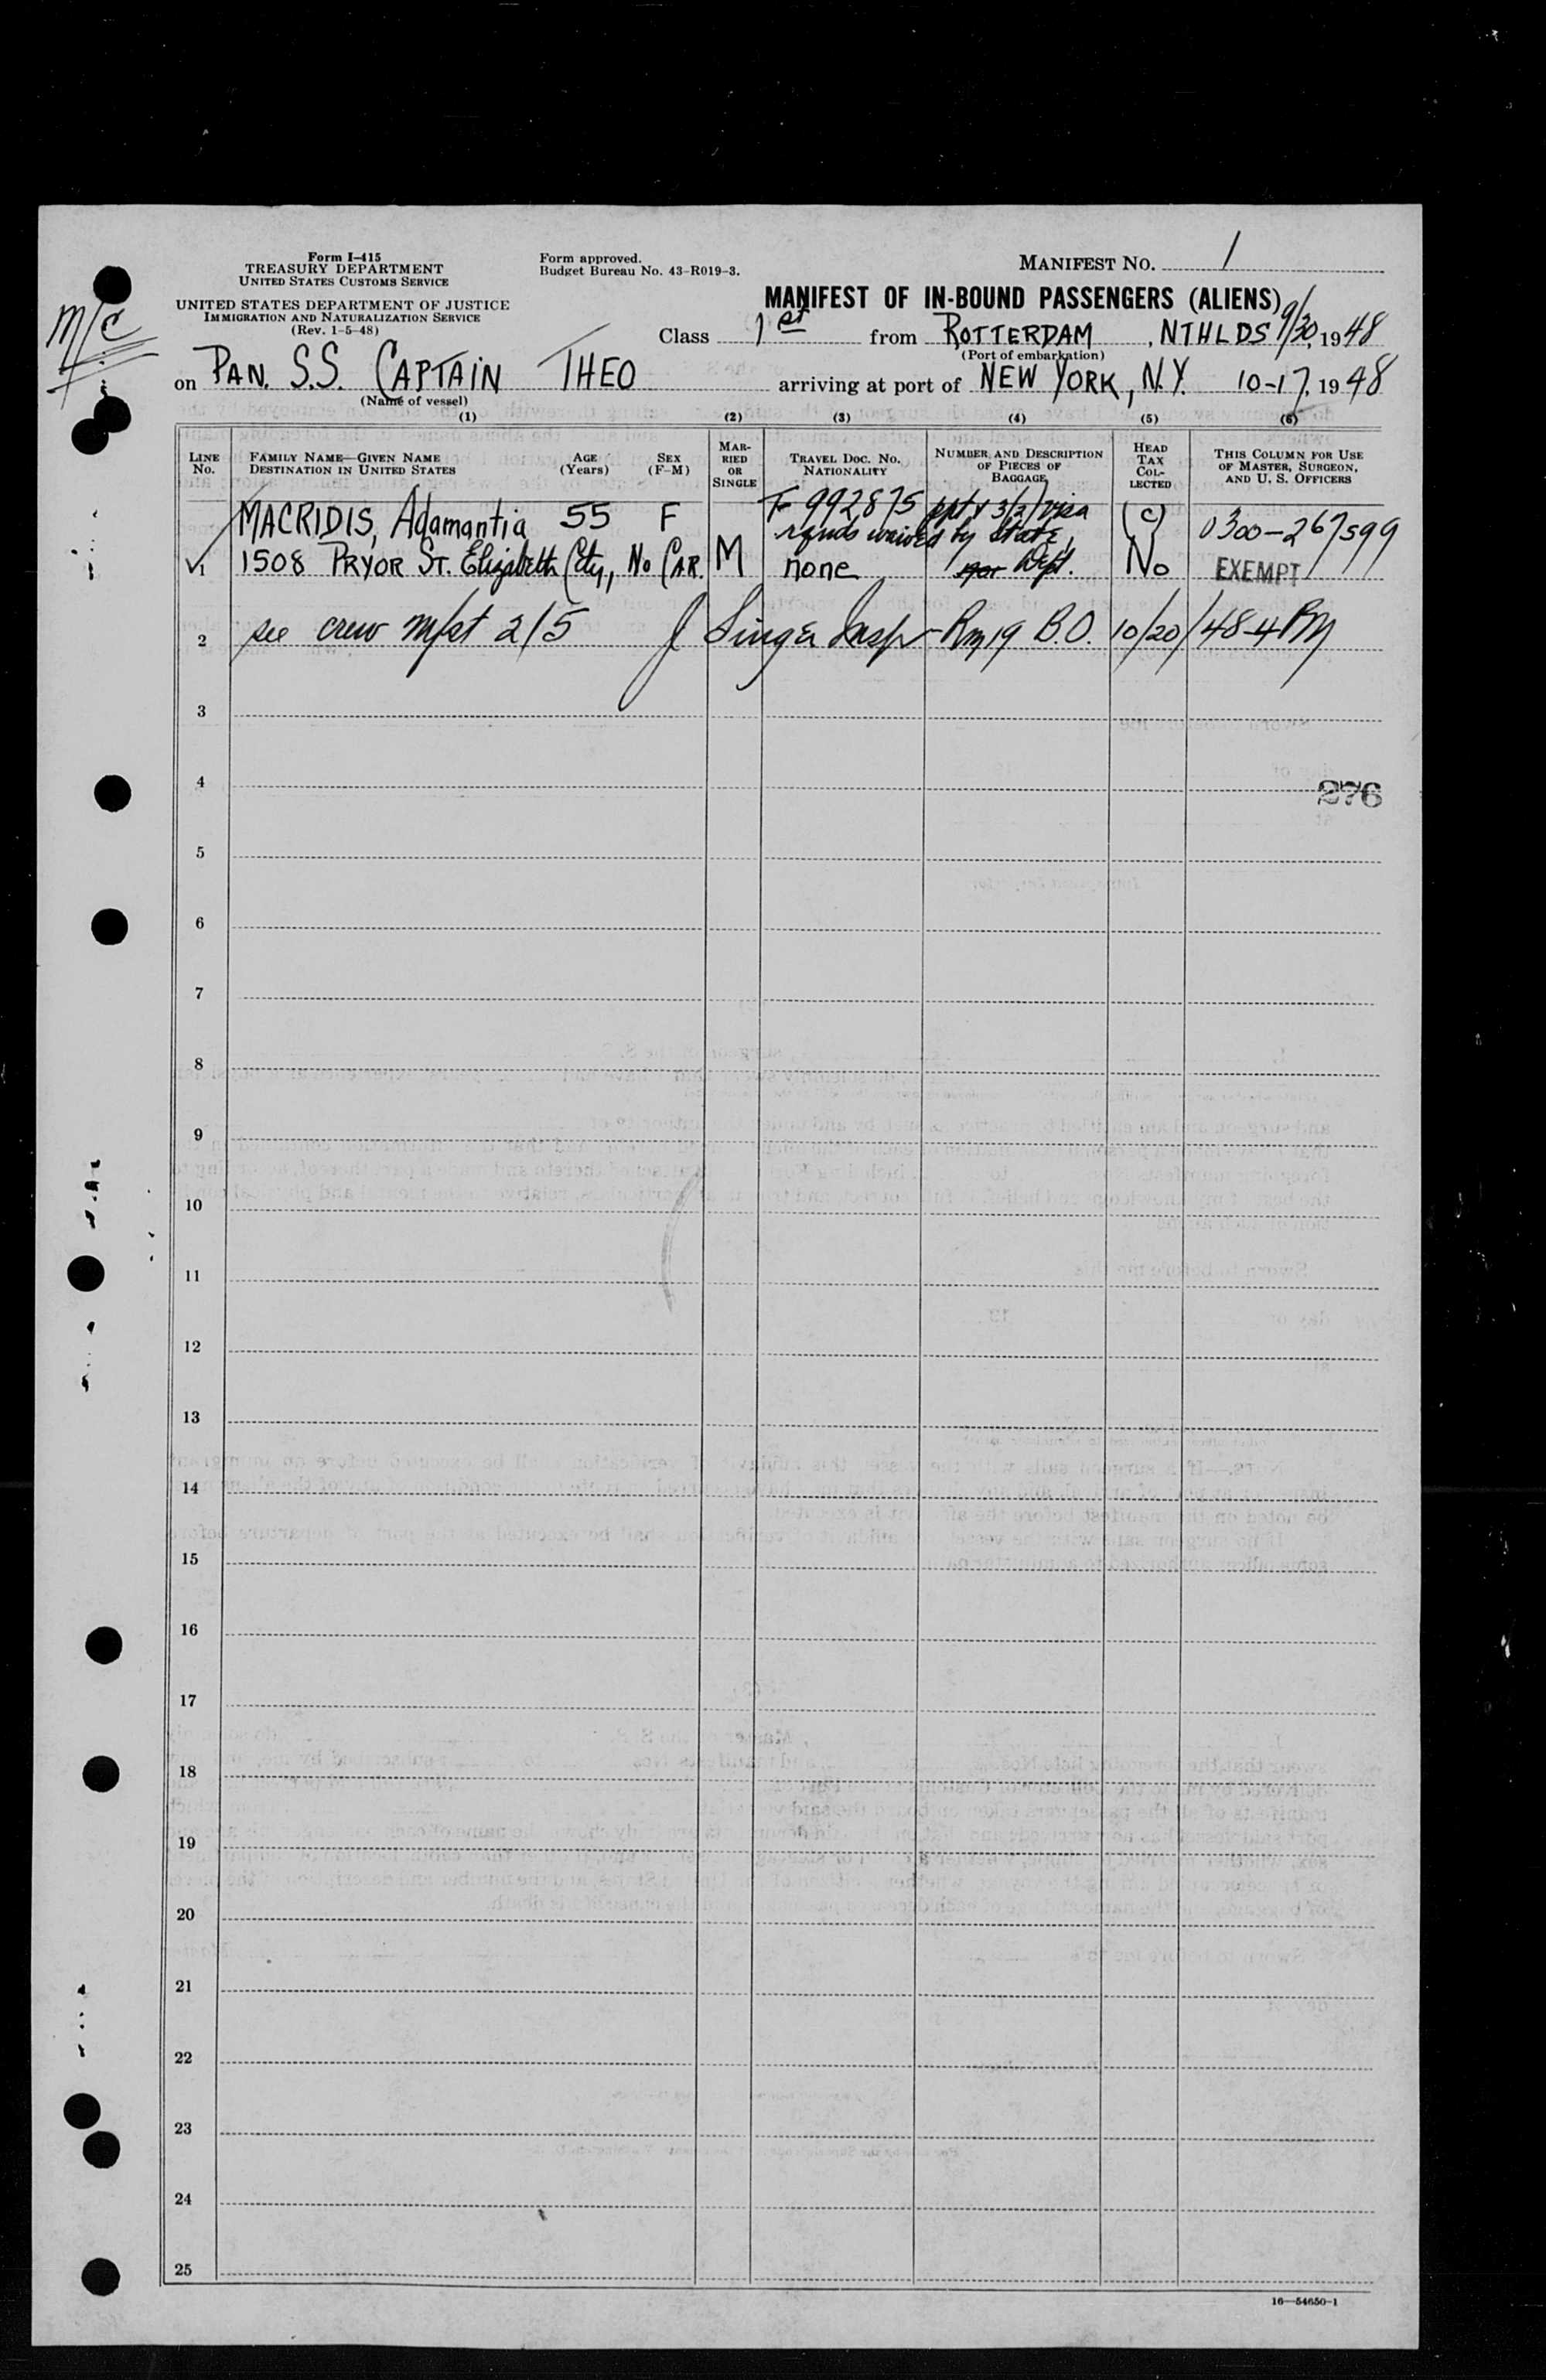 Form I-415
TREASURY DEPARTMENT
UNITED STATES CUSTOMS SERVICE
UNITED STATES DEPARTMENT OF JUSTICE
IMMIGRATION AND NATURALIZATION SERVICE
(Rev. 1-5-48)
Form approved.
Budget Bureau No. 43-R019-3.
MANIFEST NO. 1
M/C
MANIFEST OF IN-BOUND PASSENGERS (ALIENS)
Class 1st from ROTTERDAM, NTHLDS 9/30, 1948
(Port of embarkation)
on PAN. S.S. CAPTAIN THEO arriving at port of NEW YORK, N.Y. 10-17, 1948
(Name of vessel)
(1) (2) (3) (4) (5) (6)
LINE No.
FAMILY NAME—GIVEN NAME
DESTINATION IN UNITED STATES
AGE (Years)
SEX (F-M)
MAR-RIED OR SINGLE
TRAVEL DOC. NO.
NATIONALITY
NUMBER AND DESCRIPTION OF PIECES OF BAGGAGE
HEAD TAX COL-LECTED
THIS COLUMN FOR USE OF MASTER, SURGEON, AND U. S. OFFICERS
MACRIDIS, Adamantia 55 F F 992875 ppt & 3/2/visa (c) 0300-267599
rqmds waived by State,
1 1508 PRYOR ST. Elizabeth City, No CAR. M none Dept. No EXEMPT
2 see crew mfst 2/5 J Singer Insp Rm 19 B.O. 10/20/48-4 PM
3
4
276
5
6
7
8
9
10
11
12
13
14
15
16
17
18
19
20
21
22
23
24
25
16—54650-1